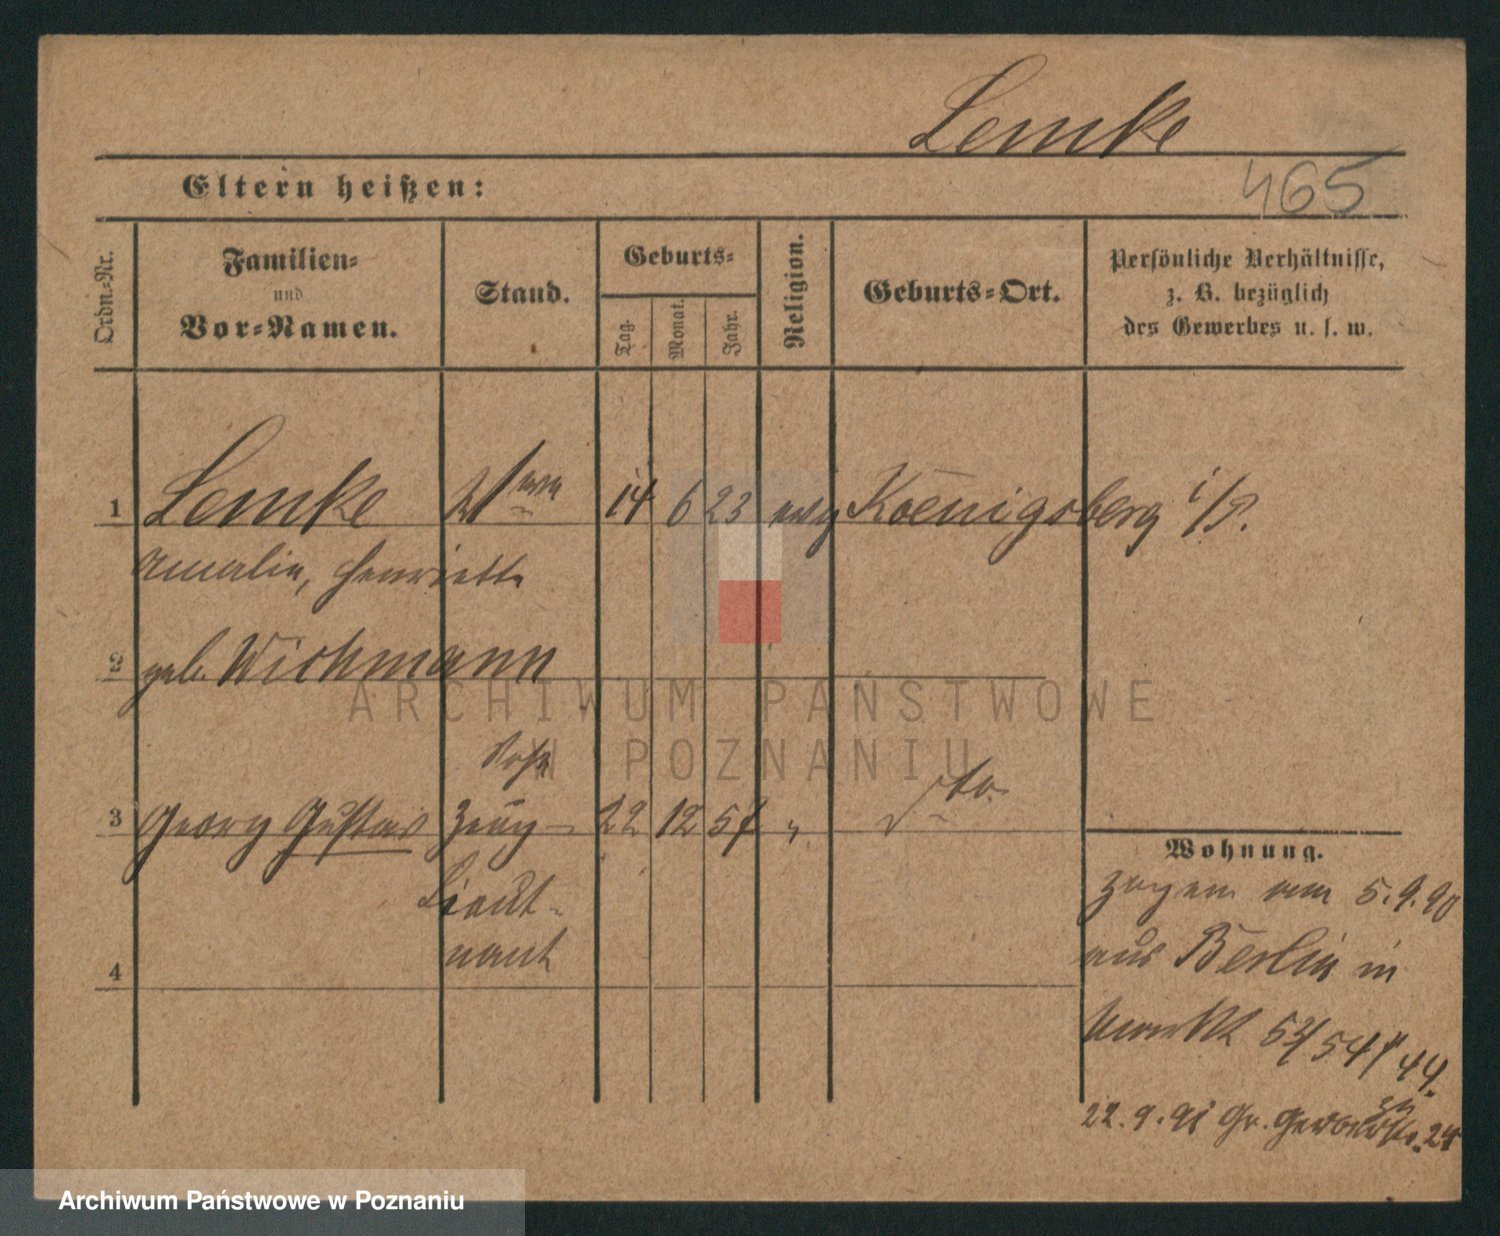 Lemke
465
Eltern heißen:
Ordn.-Nr.
Familien-
und
Vor-Namen.
Stand.
Geburts-
Tag.
Monat.
Jahr.
Religion.
Geburts-Ort.
Persönliche Verhältnisse,
z. B. bezüglich
des Gewerbes u. s. w.
1 Lemke Wwe 14 6 23 evg Koenigsberg i/P.
Amalie, Henriette
2 geb. Wichmann
Sohn
3 Georg Gustav Zeug- 22 12 57 " dto.
Lieut-
nant
4
Wohnung.
Zogen am 5.9.90
aus Berlin in
Markt 53/54 44.
22.9.91 Gr. Gerberstr. 24
ARCHIWUM PAŃSTWOWE
W POZNANIU
Archiwum Państwowe w Poznaniu